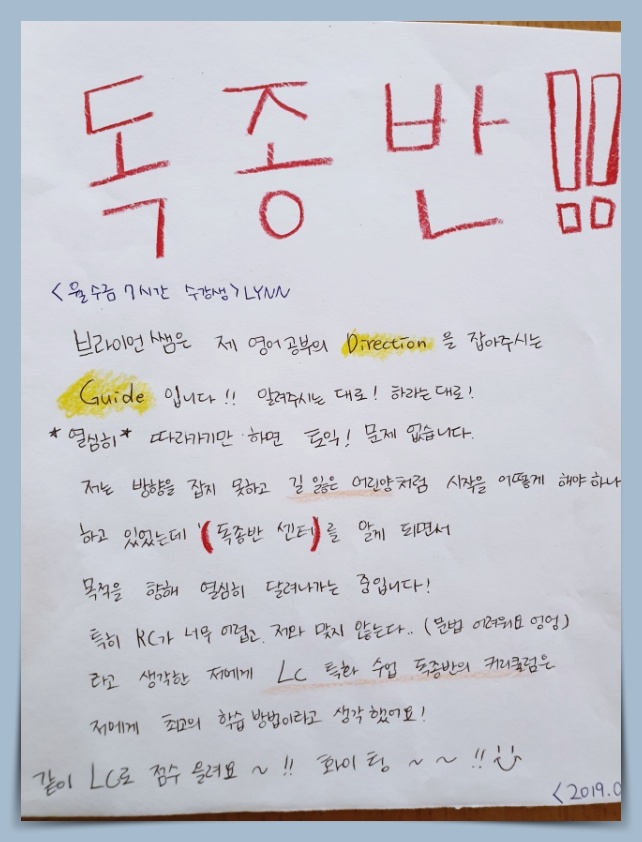 독종반!!
<월수금 7시간 수강생> LYNN
브라이언쌤은 제 영어공부의 Direction 을 잡아주시는
Guide 입니다!! 알려주시는 대로! 하라는 대로!
*열심히* 따라가기만 하면 토익! 문제 없습니다.
저는 방향을 잡지 못하고 길 잃은 어린양처럼 시작을 어떻게 해야 하나
하고 있었는데 '(독종반 센터)를 알게 되면서
목적을 향해 열심히 달려나가는 중입니다!
특히 RC가 너무 어렵고, 저와 맞지 않는다.. (문법 어려워요 엉엉)
라고 생각한 저에게 LC 특화 수업 독종반의 커리큘럼은
저에게 최고의 학습 방법이라고 생각했어요!
같이 LC로 점수 올려요 ~ !! 화이팅 ~ ~ !!
<2019.0